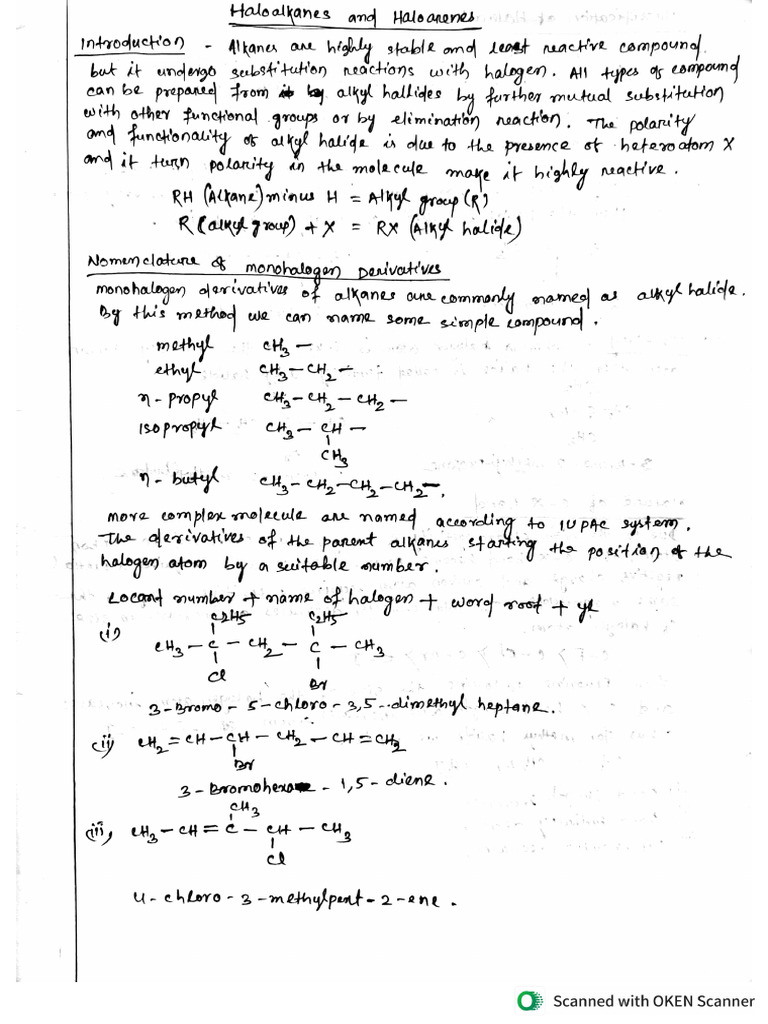 Haloalkanes and Haloarenes
Introduction - Alkanes are highly stable and least reactive compound.
but it undergo substitution reactions with halogen. All types of compound
can be prepared from by alkyl hallides by further mutual substitution
with other functional groups or by elimination reaction. The polarity
and functionality of alkyl halide is due to the presence of heteroatom X
and it turn polarity in the molecule make it highly reactive.
RH (Alkane) minus H = Alkyl group (R)
R (alkyl group) + X = RX (Alkyl halide)
Nomenclature of monohalogen Derivatives
monohalogen derivatives of alkanes are commonly named as alkyl halide.
By this method we can name some simple compound.
methyl CH3 —
ethyl CH3 — CH2 —
n - propyl CH3 — CH2 — CH2 —
isopropyl CH3 — CH —
|
CH3
n - butyl CH3 — CH2 — CH2 — CH2 —.
more complex molecule are named according to IUPAC system.
The derivatives of the parent alkanes starting the position of the
halogen atom by a suitable number.
Locant number + name of halogen + word root + yl
C2H5 C2H5
(i) CH3 — C — CH2 — C — CH3
Cl Br
3-Bromo - 5-chloro - 3,5-dimethyl heptane.
(ii) CH2 = CH — CH — CH2 — CH = CH2
Br
3-Bromohexa - 1,5-diene.
CH3
(iii) CH3 — CH = C — CH — CH3
Cl
4-chloro-3-methylpent-2-ene.
Scanned with OKEN Scanner